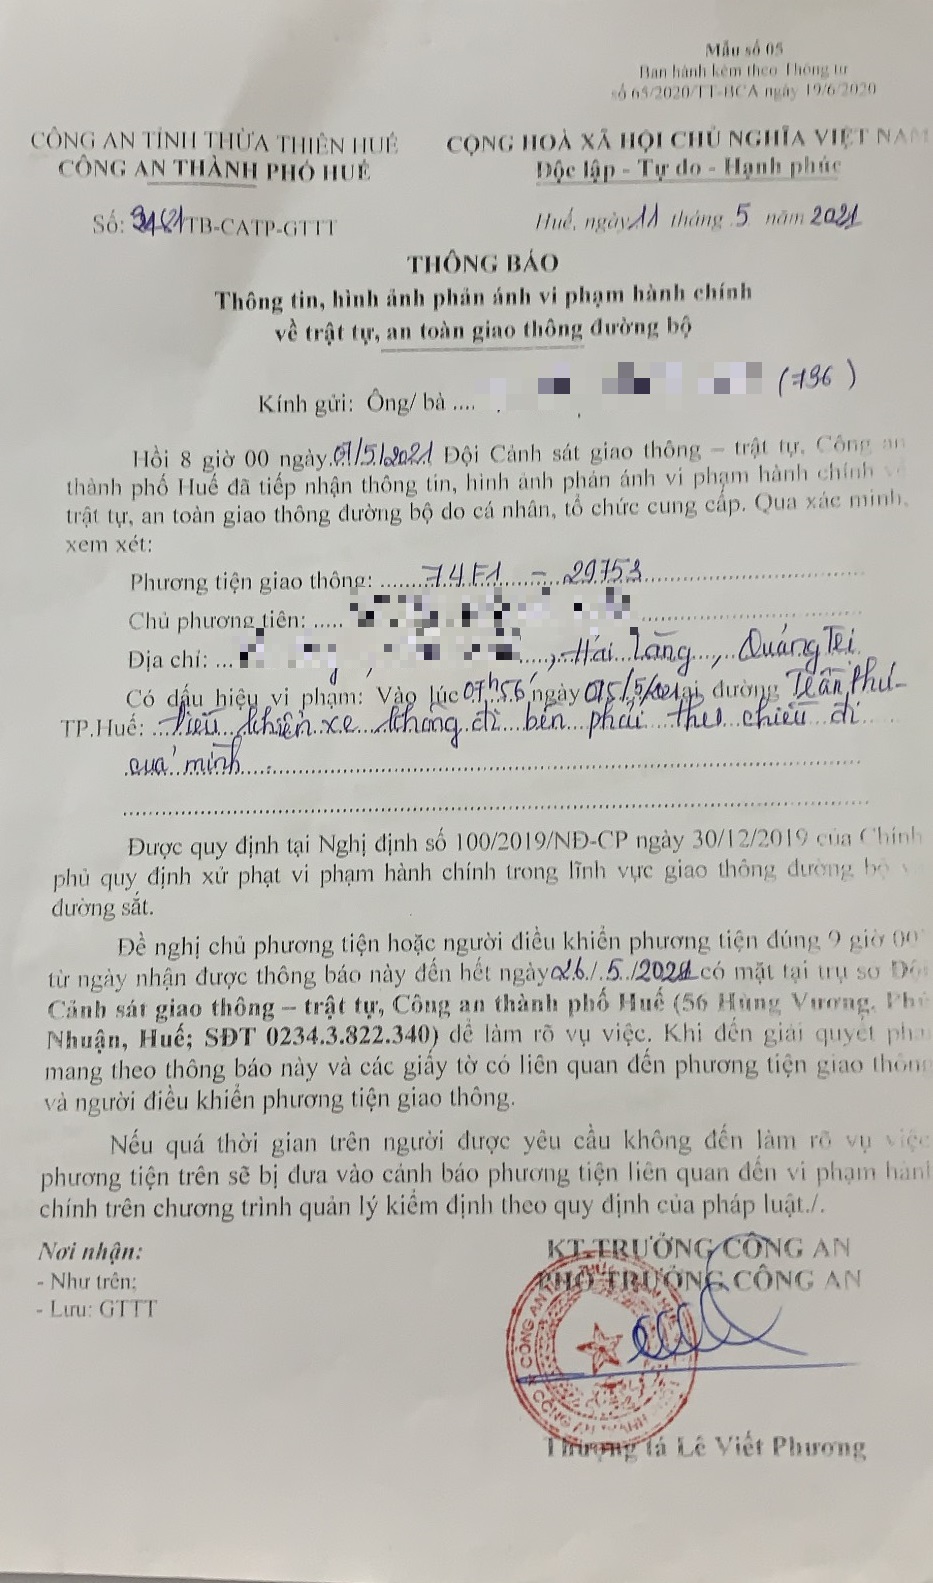 Mẫu số 05
Ban hành kèm theo Thông tư
số 65/2020/TT-BCA ngày 19/6/2020
CÔNG AN TỈNH THỪA THIÊN HUẾ
CÔNG AN THÀNH PHỐ HUẾ
CỘNG HOÀ XÃ HỘI CHỦ NGHĨA VIỆT NAM
Độc lập - Tự do - Hạnh phúc
Số: /TB-CATP-GTTT
Huế, ngày 11 tháng 5 năm 2021
THÔNG BÁO
Thông tin, hình ảnh phản ánh vi phạm hành chính
về trật tự, an toàn giao thông đường bộ
Kính gửi: Ông/ bà .... (736)
Hồi 8 giờ 00 ngày 07/5/2021 Đội Cảnh sát giao thông – trật tự, Công an
thành phố Huế đã tiếp nhận thông tin, hình ảnh phản ánh vi phạm hành chính về
trật tự, an toàn giao thông đường bộ do cá nhân, tổ chức cung cấp. Qua xác minh,
xem xét:
Phương tiện giao thông: 74F1 - 29753
Chủ phương tiên: .....
Địa chỉ: ... , Hải Lăng, Quảng Trị
Có dấu hiệu vi phạm: Vào lúc 07h56 ngày tại đường Trần Phú -
TP.Huế: Điều khiển xe không đi bên phải theo chiều đi
của mình
Được quy định tại Nghị định số 100/2019/NĐ-CP ngày 30/12/2019 của Chính
phủ quy định xử phạt vi phạm hành chính trong lĩnh vực giao thông đường bộ và
đường sắt.
Đề nghị chủ phương tiện hoặc người điều khiển phương tiện đúng 9 giờ 00'
từ ngày nhận được thông báo này đến hết ngày 26/5/2021 có mặt tại trụ sơ Đội
Cảnh sát giao thông – trật tự, Công an thành phố Huế (56 Hùng Vương, Phú
Nhuận, Huế; SĐT 0234.3.822.340) để làm rõ vụ việc. Khi đến giải quyết phải
mang theo thông báo này và các giấy tờ có liên quan đến phương tiện giao thông
và người điều khiển phương tiện giao thông.
Nếu quá thời gian trên người được yêu cầu không đến làm rõ vụ việc
phương tiện trên sẽ bị đưa vào cảnh báo phương tiện liên quan đến vi phạm hành
chính trên chương trình quản lý kiểm định theo quy định của pháp luật./.
Nơi nhận:
- Như trên;
- Lưu: GTTT
KT.TRƯỞNG CÔNG AN
PHÓ TRƯỞNG CÔNG AN
Thượng tá Lê Viết Phương